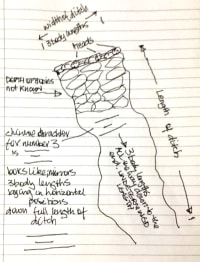 width of ditch
3 body lengths
heads
Length of ditch
DEPTH of BODIES
not known
chinese character
for number 3
looks like mirrors
3 body lengths
laying in horizontal
positions
down full length of
ditch
3 body lengths